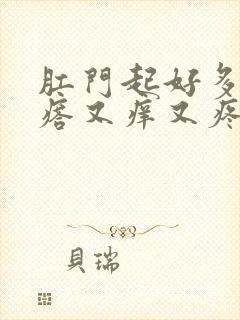 肛門起好多
瘩又痒又疼
貝瑞